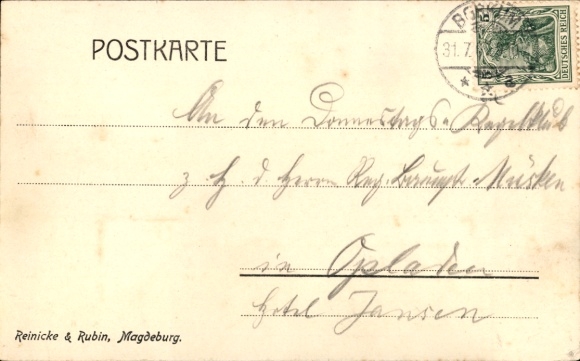 POSTKARTE
BORKUM
31.7.
DEUTSCHES REICH
An den Donnerstags-Kegelklub
z. H. d. Herrn Reg. Müsken
in Opladen
Hotel Jansen
Reinicke & Rubin, Magdeburg.